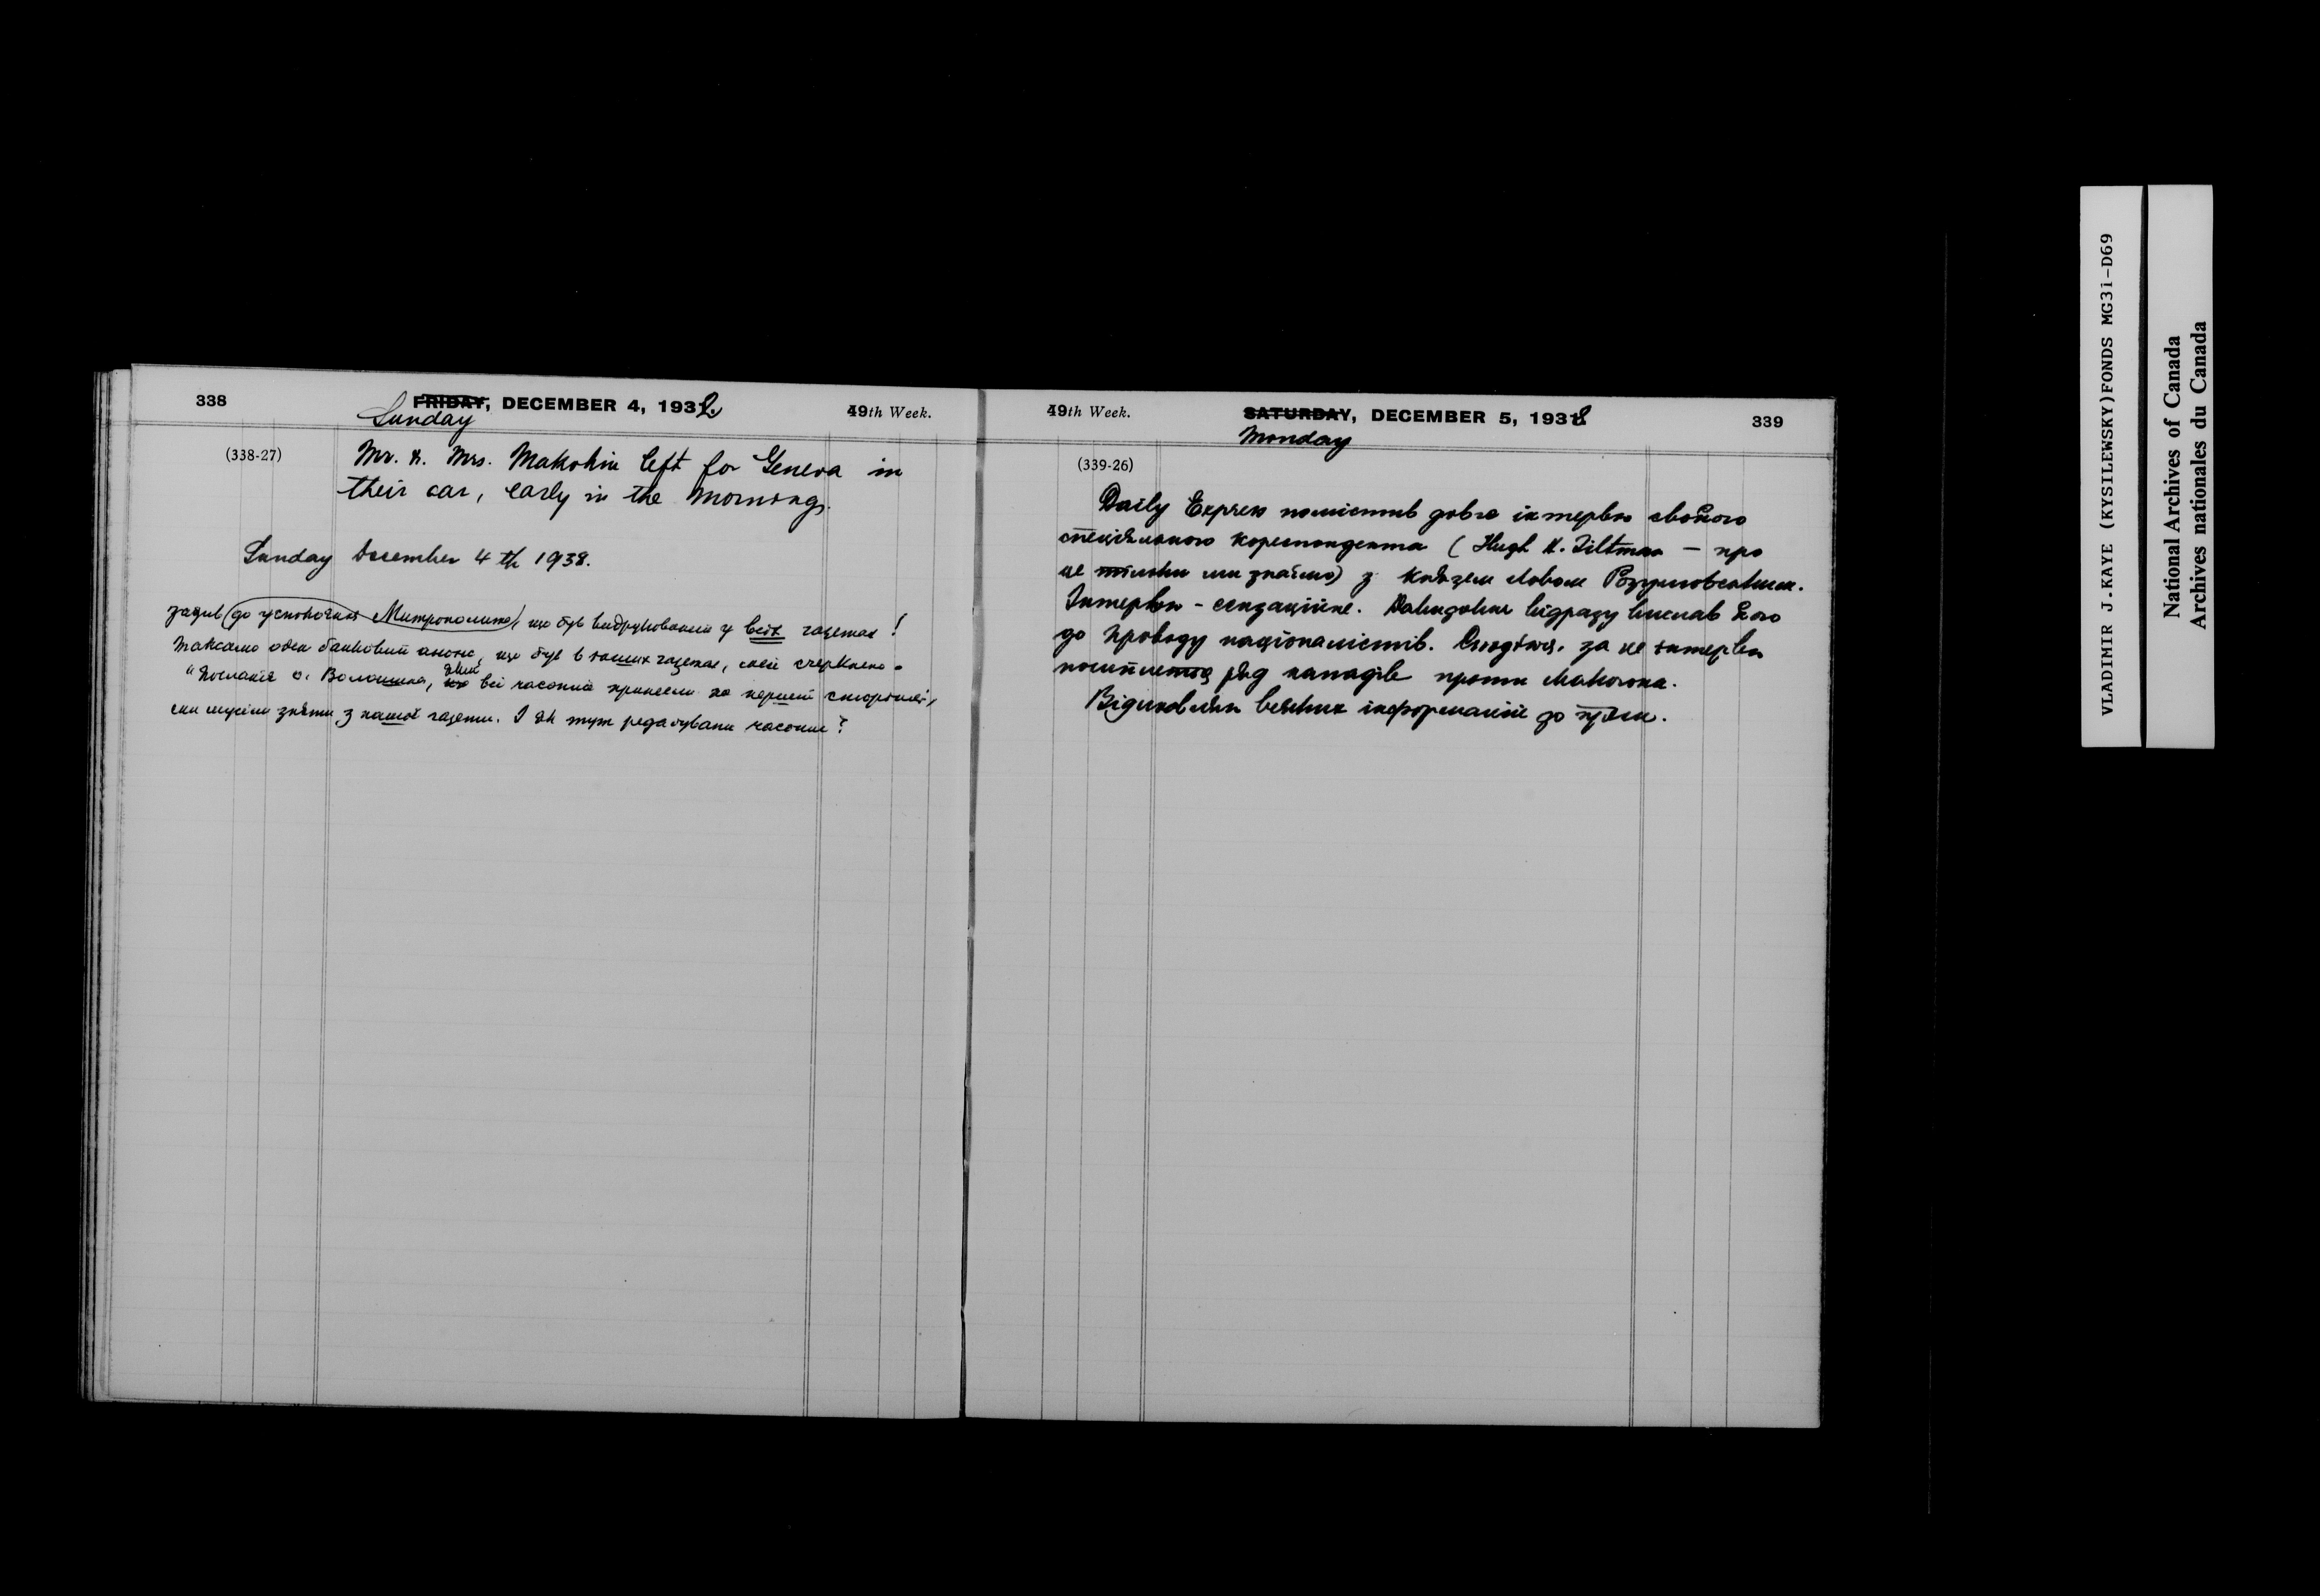 338
FRIDAY, DECEMBER 4, 1938.
Sunday
49th Week.
(338-27)
Mr. & Mrs. Makohin left for Geneva in
their car, early in the morning.
Sunday December 4th 1938.
зазив (до успокоєння Митрополита), що був видрукований у всіх газетах!
Также один банковий анонс, що був в інших газетах, скреслено.
"Послання о. Волошина, яке всі часописи принесли на першій сторінці,
ми мусіли зняти з нашої газети. І як тут редагувати часопис?
49th Week.
SATURDAY, DECEMBER 5, 1938
Monday
339
(339-26)
Daily Express помістив довге інтервю свойого
спеціяльного кореспондента (Hugh H. Tiltman — про
це тільки ми знаємо) з князем Львом Розумовським.
Інтервю - сензаційне. Давидович відразу вислав його
до Проводу націоналістів. за це інтервю
ряд нападів проти Макогона.
Відмовляю всяких інформацій до преси.
VLADIMIR J.KAYE (KYSILEWSKY)FONDS MG31-D69
National Archives of Canada
Archives nationales du Canada